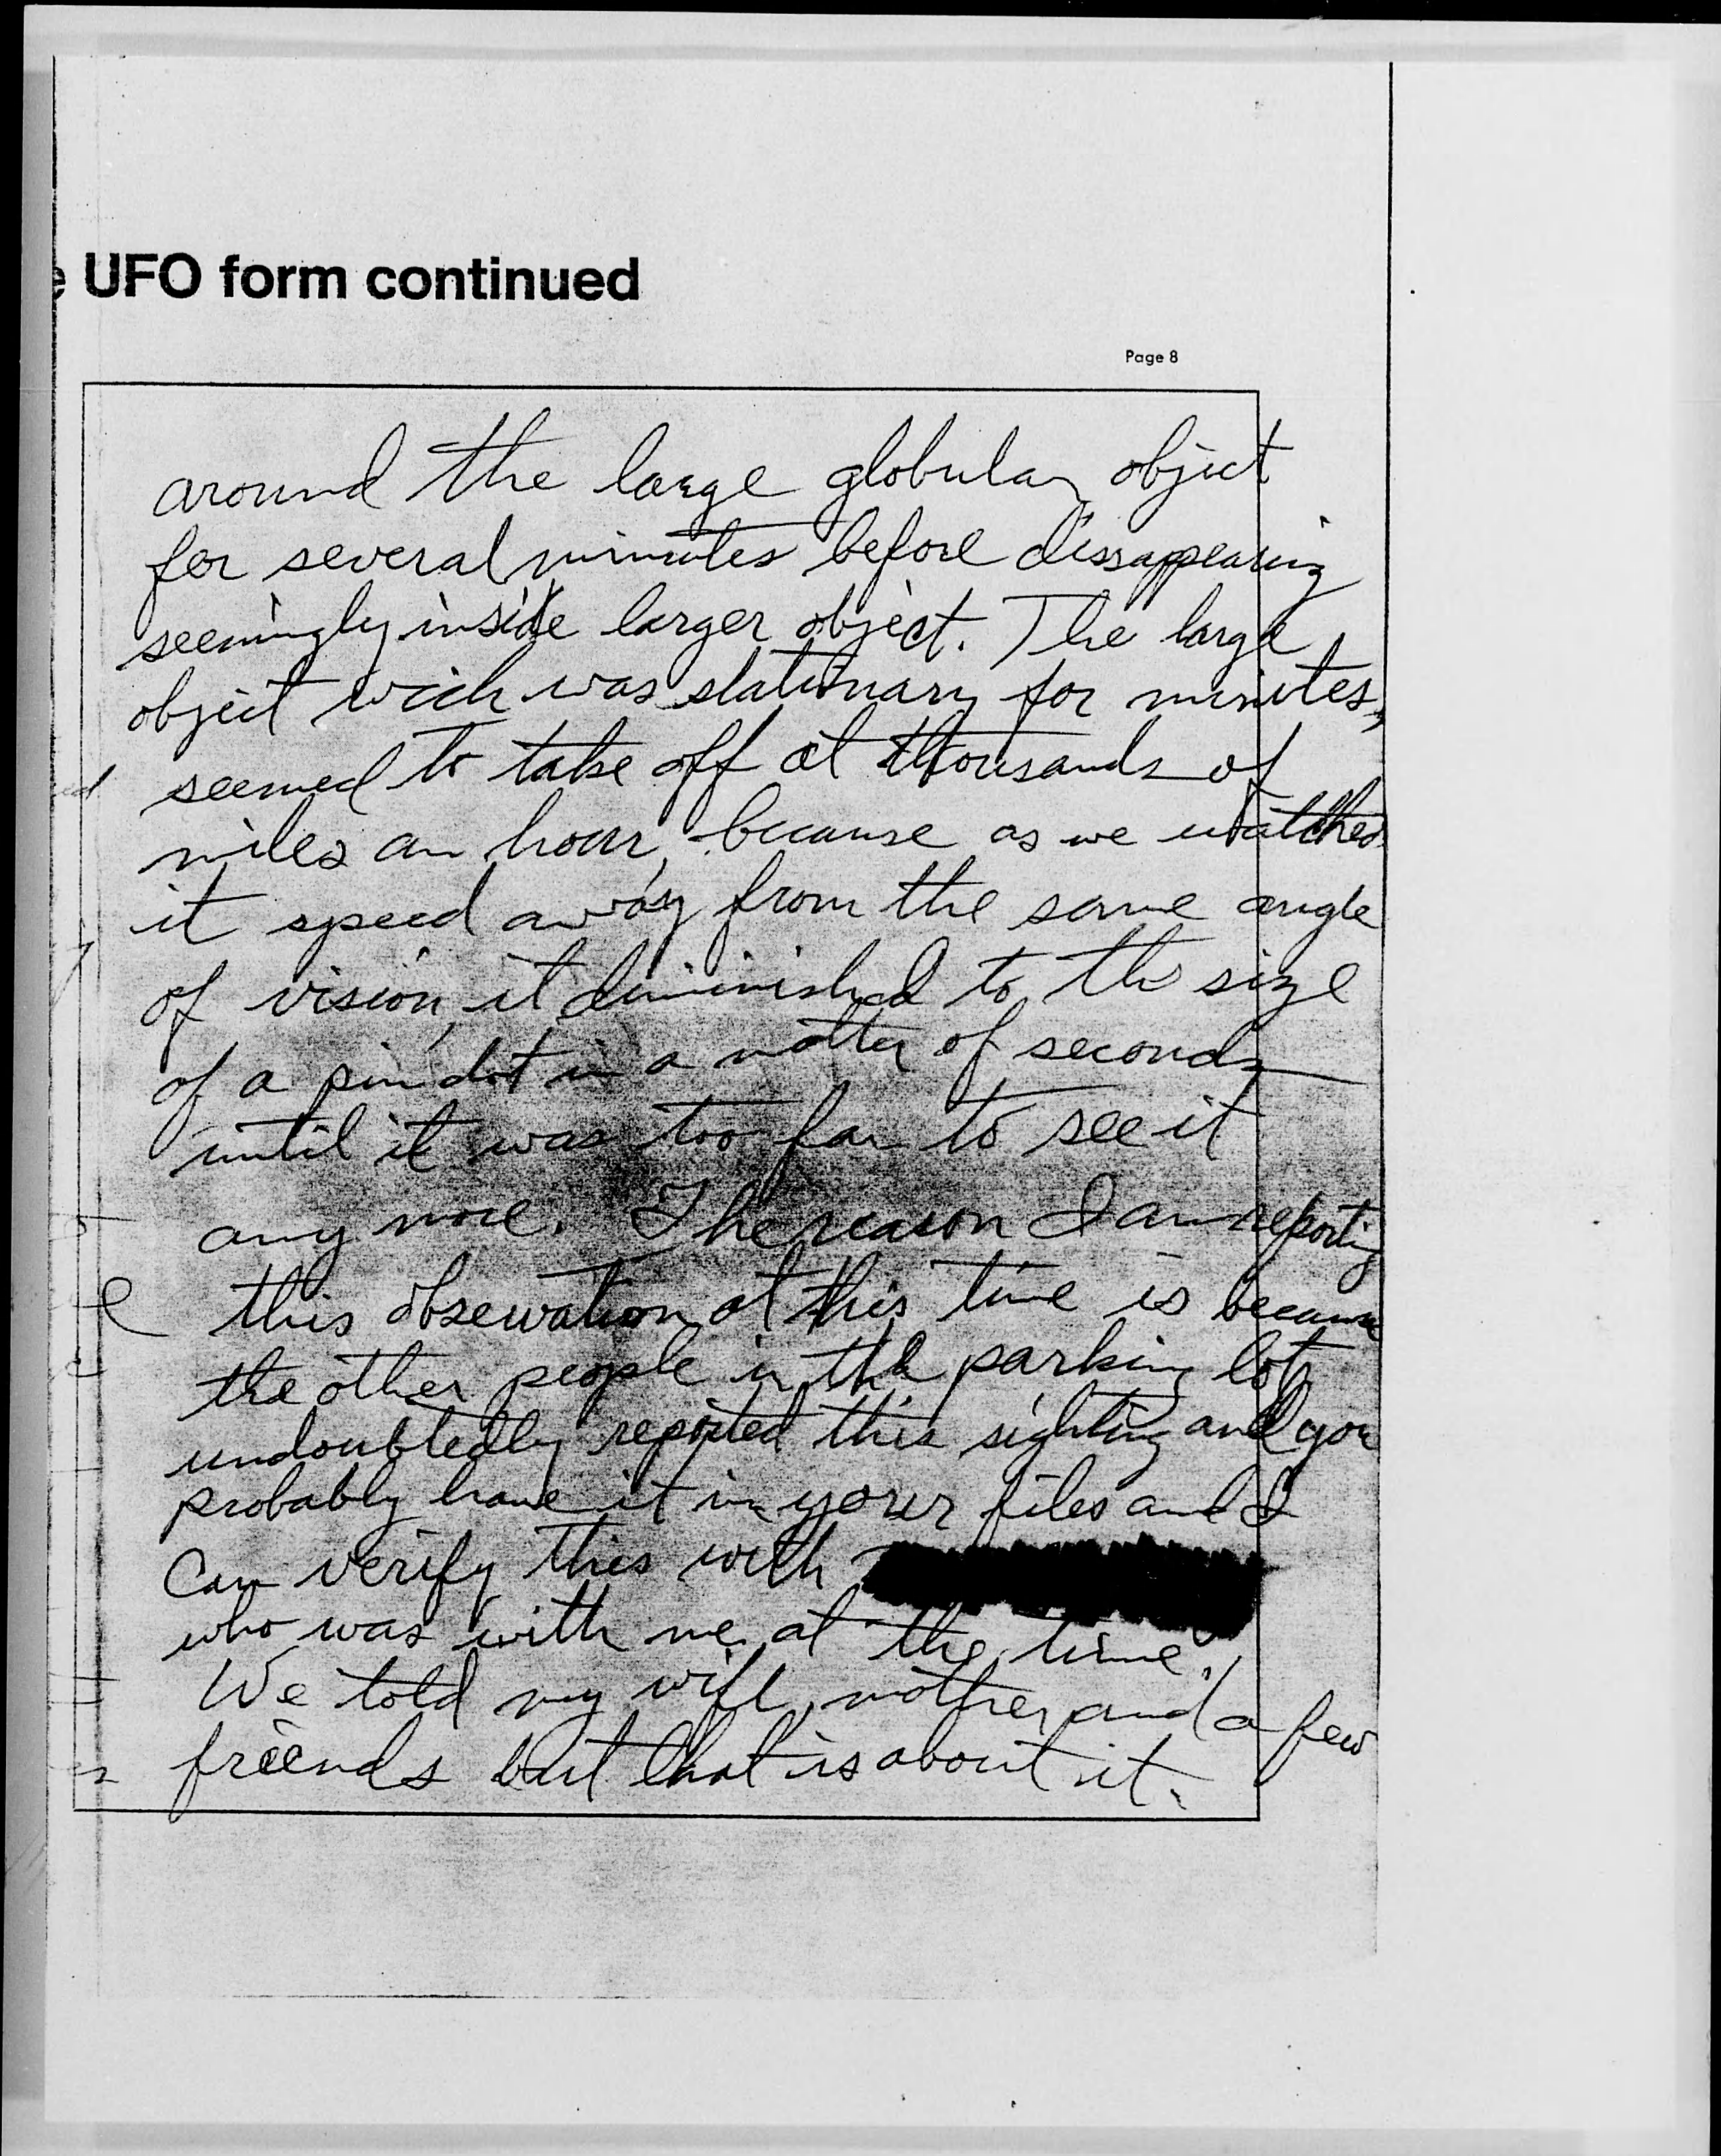 UFO form continued
Page 8
around the large globular object
for several minutes before dissappearing
seemingly inside larger object. The large
object wich was stationary for minutes,
seemed to take off at thousands of
miles an hour, because as we watched
it speed away from the same angle
of vision, it diminished to the size
of a pin dot in a matter of seconds
until it was too far to see it
any more. The reason I am reporting
this observation at this time is because
the other people in the parking lot
undoubtedly reported this sighting and you
probably have it in your files and I
can verify this with
who was with me at the time.
We told my wife, mother and a few
friends but that is about it.